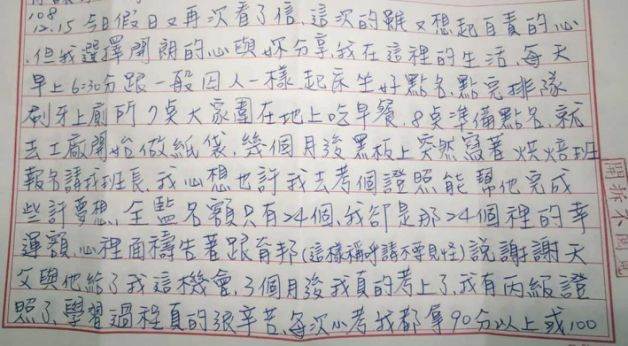 108
12.15 今日假日又再次看了信,這次的雖又想起自責的心
,但我選擇開朗的心與妳分享,我在這裡的生活,每天
早上6:30分跟一般囚人一樣起床坐好點名,點完排隊
刷牙上廁所7點大家圍在地上吃早餐,8點準備點名,就
去工廠開始做紙袋,幾個月後黑板上突然寫著烘焙班
報名請找班長,我心想也許我去考個證照能幫他完成
些許夢想,全監名額只有24個,我卻是那24個裡的幸
運額,心裡面禱告著跟育邦(這樣稱呼請不要見怪)說謝謝天
父與他給了我這機會,3個月後我真的考上了,我有丙級證
照了,學習過程真的很辛苦,每次小考我都拿90分以上或100